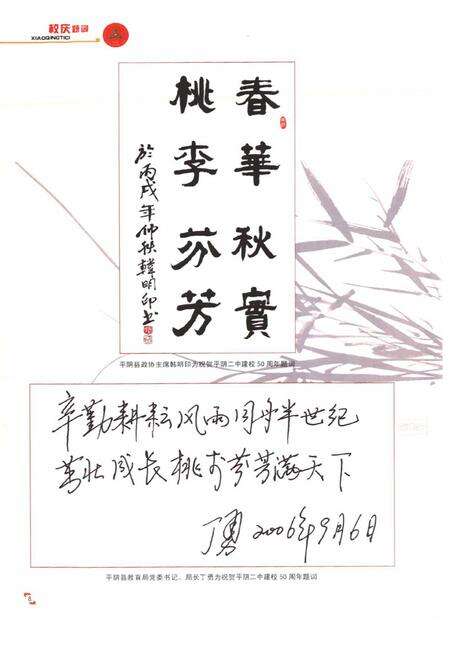 校庆题词
XIAOQINGTICI
春華秋實
桃李芬芳
於丙戌年仲秋韓明印书
平阴县政协主席韩明印为祝贺平阴二中建校50周年题词
辛勤耕耘风雨同舟半世纪
茁壮成长桃李芬芳满天下
丁勇 2006年9月6日
平阴县教育局党委书记、局长丁勇为祝贺平阴二中建校50周年题词
8